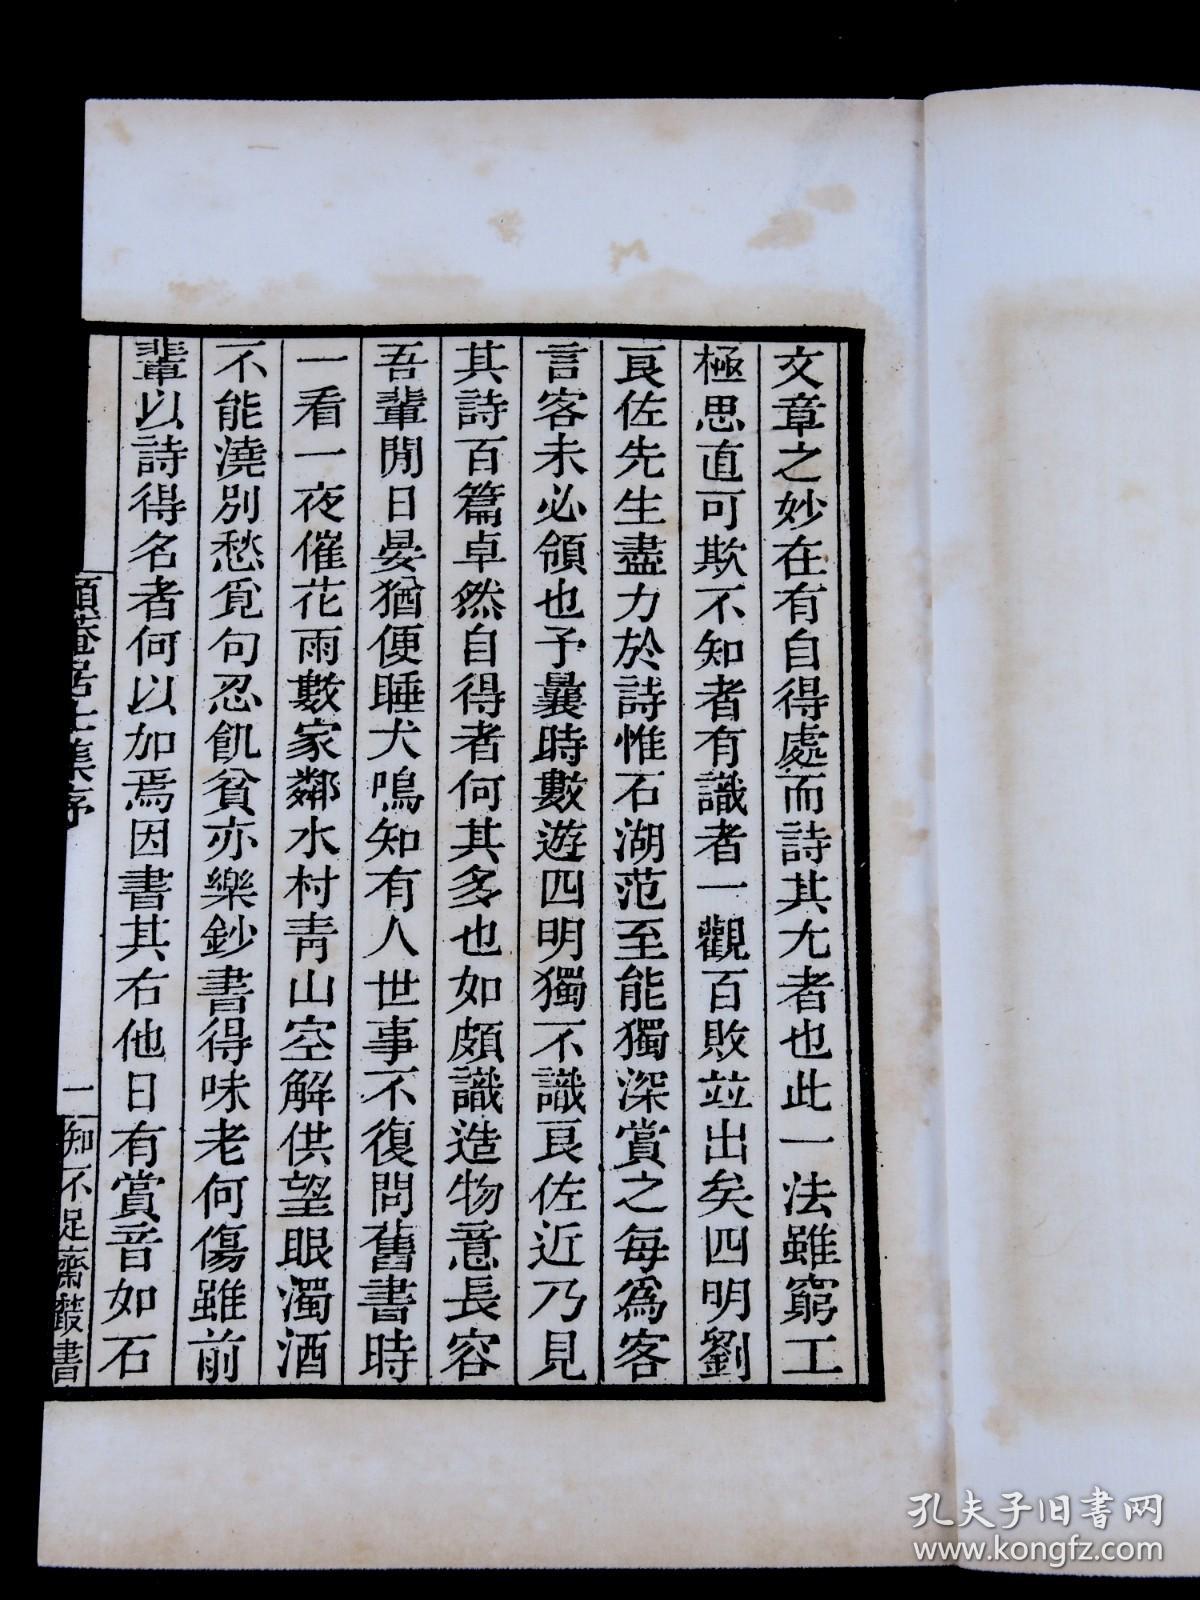 文章之妙在有自得處而詩其尤者也此一法雖窮工
極思直可欺不知者有識者一觀百敗並出矣四明劉
良佐先生盡力於詩惟石湖范至能獨深賞之每爲客
言客未必領也予曩時數遊四明獨不識良佐近乃見
其詩百篇卓然自得者何其多也如頗識造物意長容
吾輩閒日晏猶便睡犬鳴知有人世事不復問舊書時
一看一夜催花雨數家鄰水村青山空解供望眼濁酒
不能澆別愁覓句忍飢貧亦樂鈔書得味老何傷雖前
輩以詩得名者何以加焉因書其右他日有賞音如石
頤菴居士集序
一
知不足齋叢書
孔夫子旧书网
www.kongfz.com